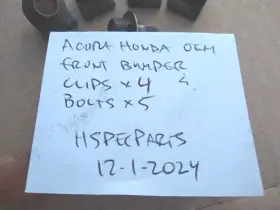 ACURA HONDA OEM
FRONT BUMPER
CLIPS x 4
BOLTS x 5
HSPECPARTS
12-1-2024